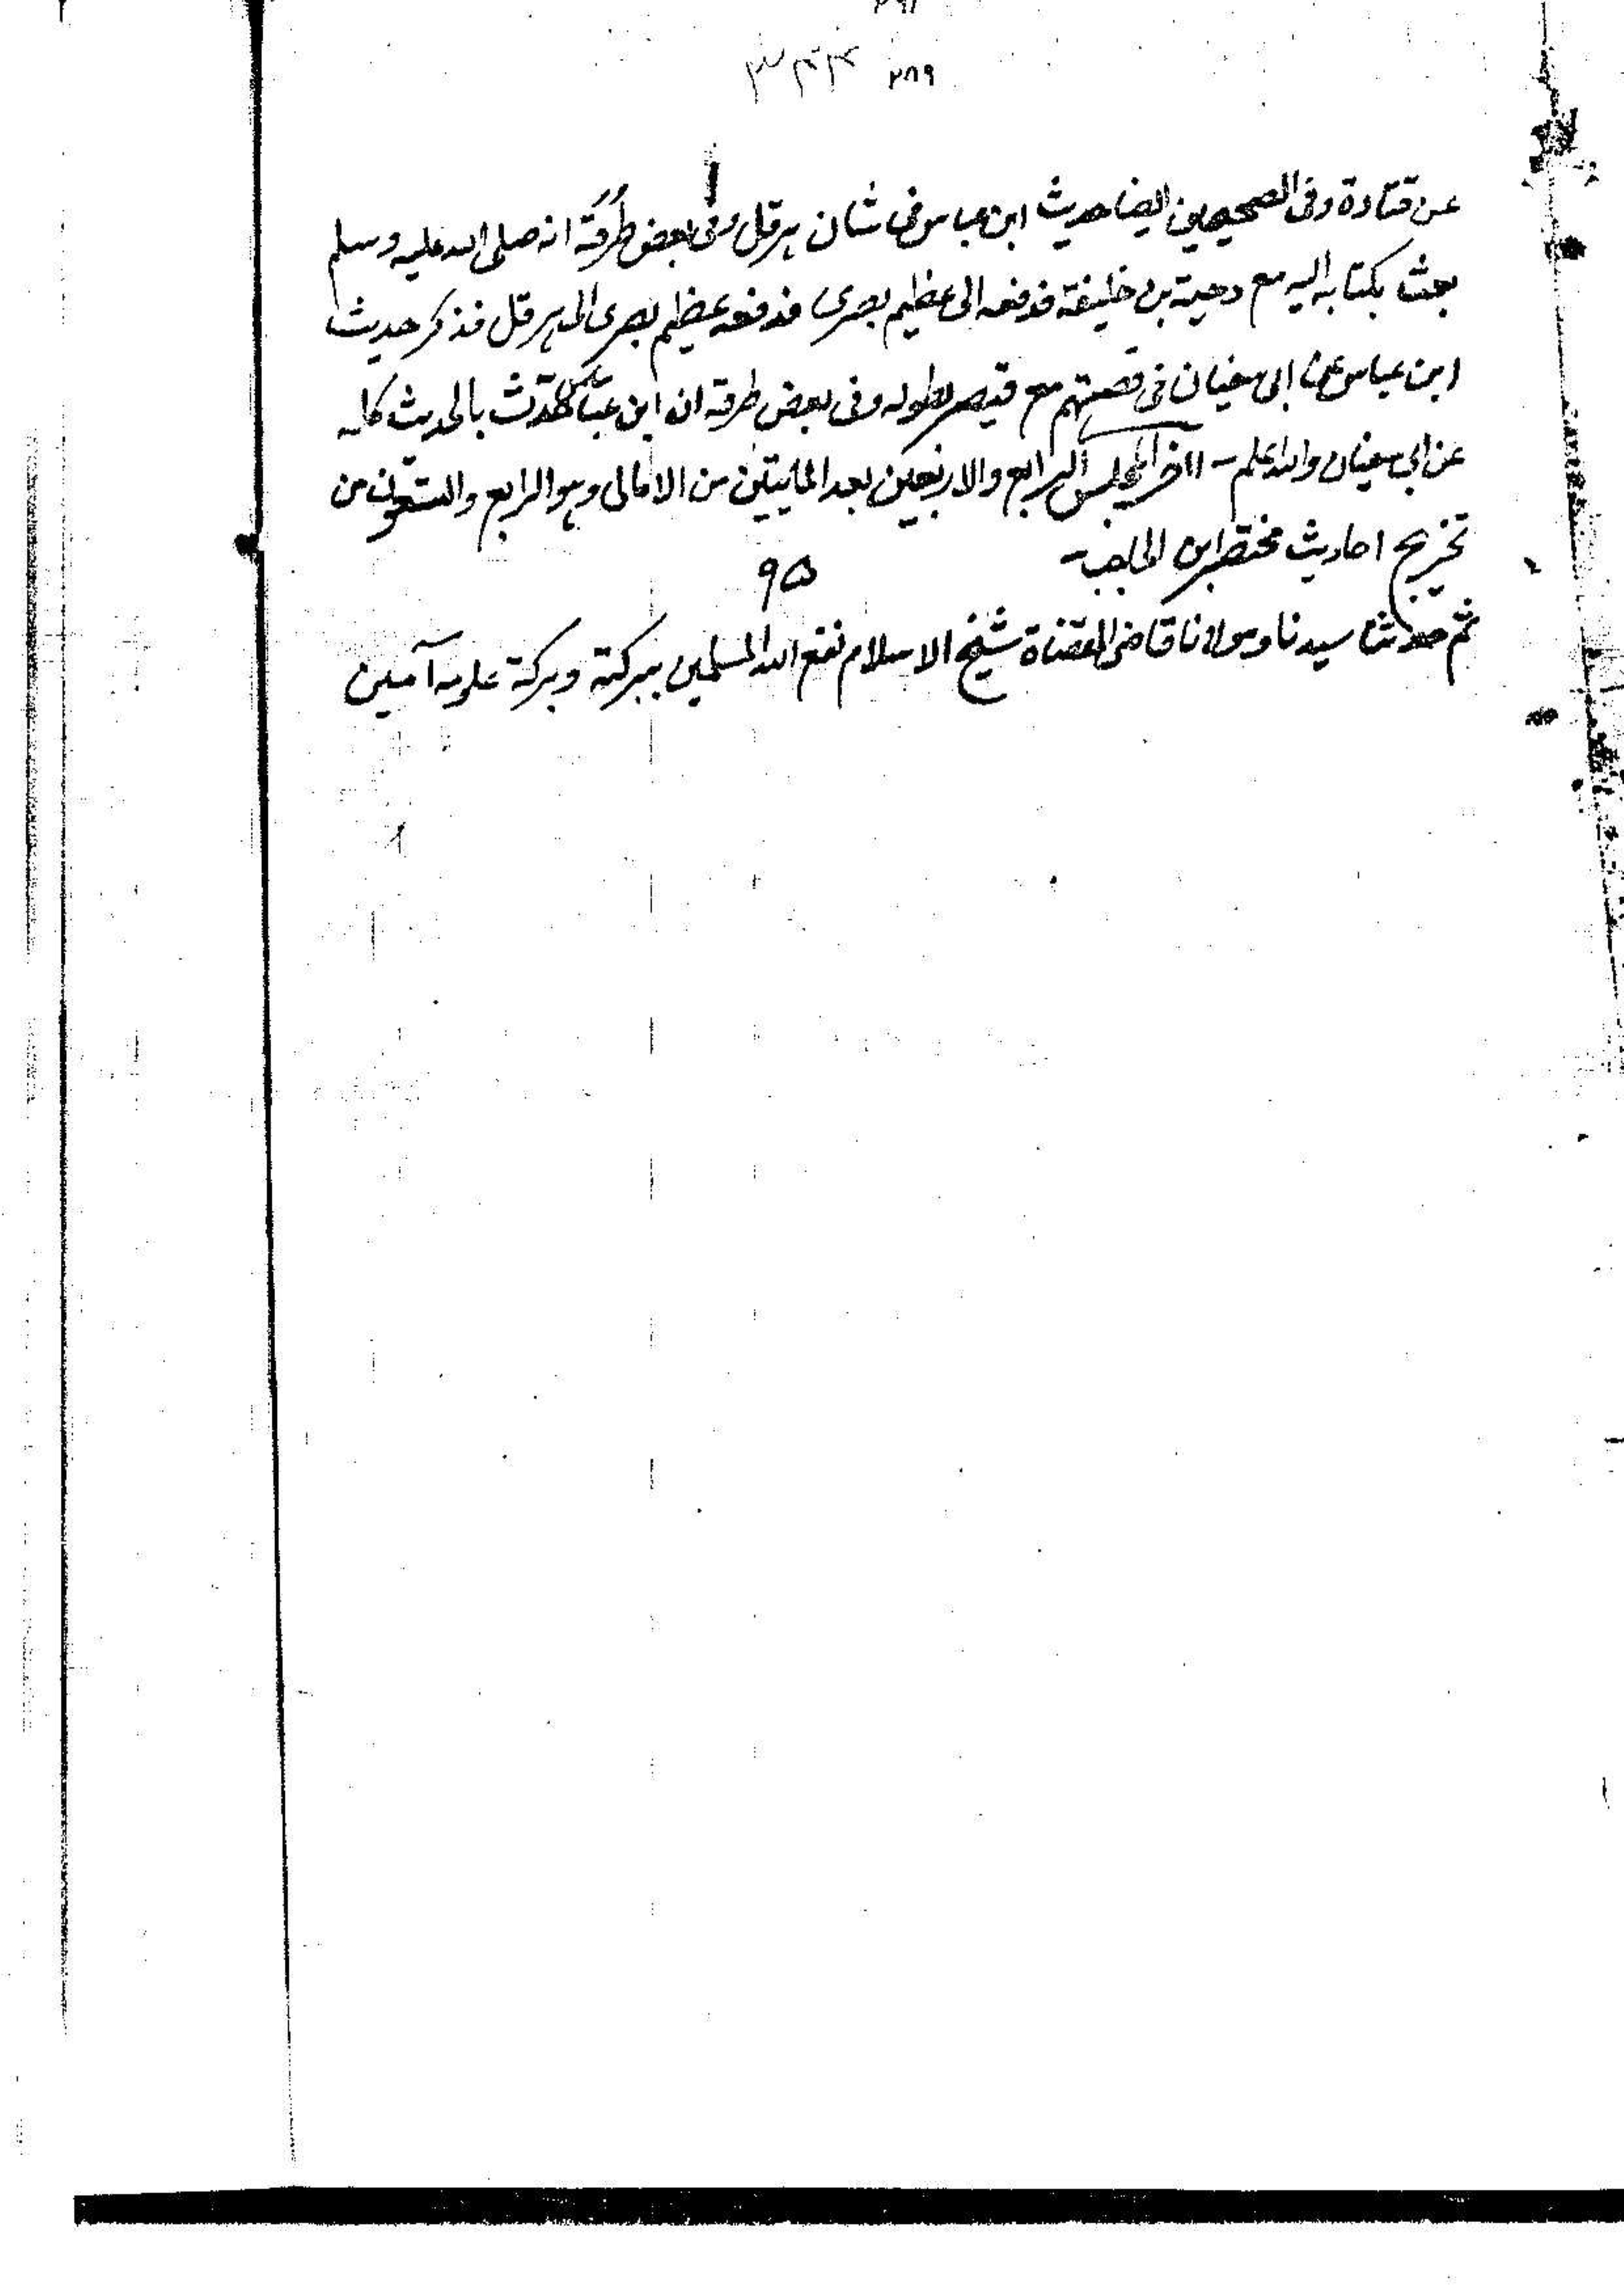 ٢٨٩
عن قتادة وفى الصحيحين ايضا حديث ابن عباس فى شان هرقل وفى بعض طرقه انه صلى الله عليه وسلم
بعث بكتابه اليه مع دحية بن خليفة فدفعه الى عظيم بصرى فدفعه عظيم بصرى الى هرقل فذكر حديث
ابن عباس عن ابى سفيان فى قصتهم مع قيصر بطوله وفى بعض طرقه ان ابن عباس حدث بالحديث كله
عن ابى سفيان والله اعلم۔ آخر المجلس الرابع والاربعين بعد المايتين من الامالى وهو الرابع والتسعون من
تخريج احاديث مختصر ابن الحاجب۔
٩٥
ثم حدثنا سيدنا ومولانا قاضى القضاة شيخ الاسلام نفع الله المسلمين ببركته وبركة علومه آمين